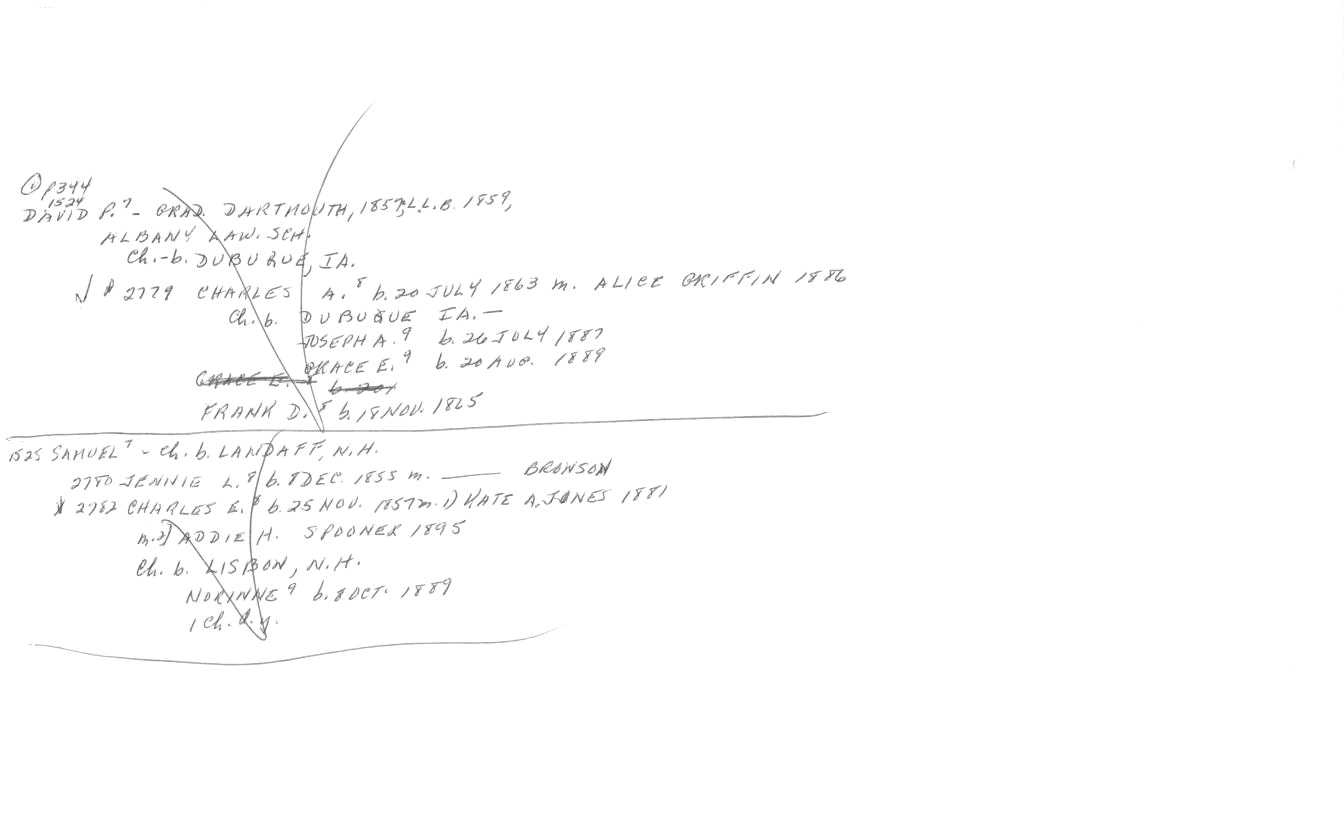 ① p344
1524
DAVID P.⁷ - GRAD. DARTMOUTH, 1857, L.L.B. 1859,
ALBANY LAW. SCH.
Ch.-b. DUBUQUE, IA.
√ * 2779 CHARLES A.⁸ b. 20 JULY 1863 m. ALICE GRIFFIN 1886
Ch. b. DUBUQUE IA. —
JOSEPH A.⁹ b. 26 JULY 1887
GRACE E.⁹ b. 20 AUG. 1889
GRACE E. b. 20
FRANK D.⁸ b. 18 NOV. 1865
1525 SAMUEL⁷ - Ch. b. LANDAFF, N.H.
2780 JENNIE L.⁸ b. 8 DEC. 1855 m. —— BRONSON
* 2782 CHARLES E.⁸ b. 25 NOV. 1857 m. 1) KATE A. JONES 1881
m. 2) ADDIE H. SPOONER 1895
Ch. b. LISBON, N.H.
NORINNE⁹ b. 8 OCT. 1889
1 Ch. d.y.